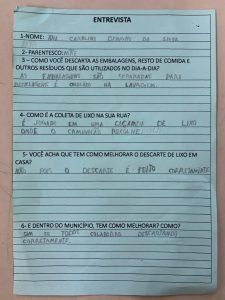 ENTREVISTA
1-NOME: ANA CAROLINE DA SILVA
2- PARENTESCO: MÃE
3 – COMO VOCÊ DESCARTA AS EMBALAGENS, RESTO DE COMIDA E
OUTROS RESÍDUOS QUE SÃO UTILIZADOS NO DIA-A-DIA?
AS EMBALAGENS SÃO SEPARADAS PARA
RECICLAGEM E COMIDA NA LAVAGEM.
4- COMO É A COLETA DE LIXO NA SUA RUA?
É JOGADO EM UMA CAÇAMBA DE LIXO
ONDE O CAMINHÃO RECOLHE.
5- VOCÊ ACHA QUE TEM COMO MELHORAR O DESCARTE DE LIXO EM
CASA?
NÃO POIS O DESCARTE É FEITO CORRETAMENTE.
6- E DENTRO DO MUNICÍPIO, TEM COMO MELHORAR? COMO?
SIM SE TODOS COLABORAR DESCARTANDO
CORRETAMENTE.